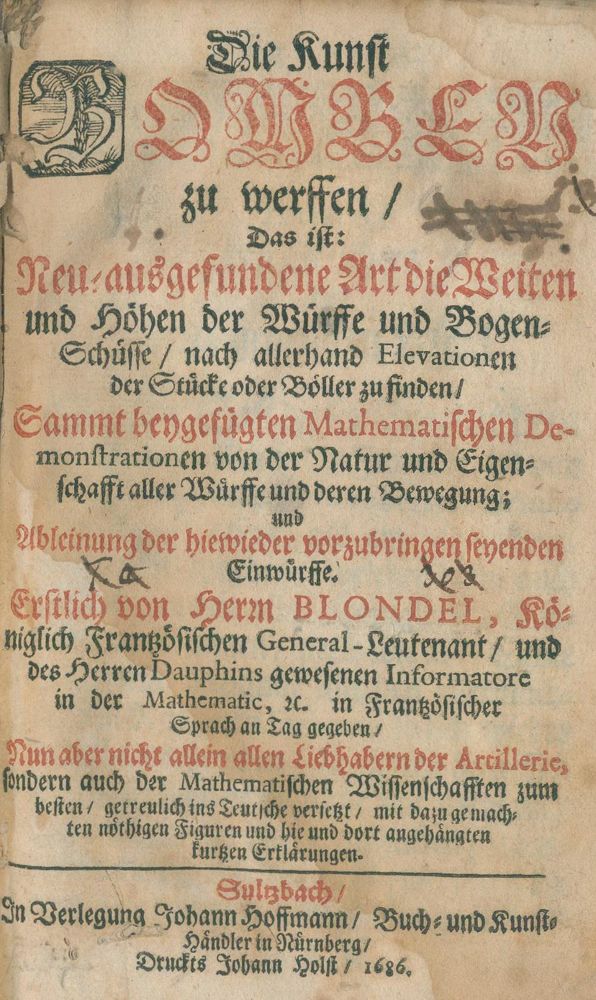 Die Kunst
BOMBEN
zu werffen /
Das ist:
Neu-ausgefundene Art die Weiten
und Höhen der Würffe und Bogen-
Schüsse / nach allerhand Elevationen
der Stücke oder Böller zu finden /
Sammt beygefügten Mathematischen De-
monstrationen von der Natur und Eigen-
schafft aller Würffe und deren Bewegung;
und
Ableinung der hiewieder vorzubringen seyenden
Einwürffe.
Erstlich von Herrn BLONDEL, Kö-
niglich Frantzösischen General-Leutenant / und
des Herren Dauphins gewesenen Informatore
in der Mathematic, ꝛc. in Frantzösischer
Sprach an Tag gegeben /
Nun aber nicht allein allen Liebhabern der Artillerie,
sondern auch der Mathematischen Wissenschafften zum
besten / getreulich ins Teutsche versetzt / mit dazu gemach-
ten nöthigen Figuren und hie und dort angehängten
kurtzen Erklärungen.
Sultzbach /
In Verlegung Johann Hoffmann / Buch- und Kunst-
Händler in Nürnberg /
Druckts Johann Holst / 1686.